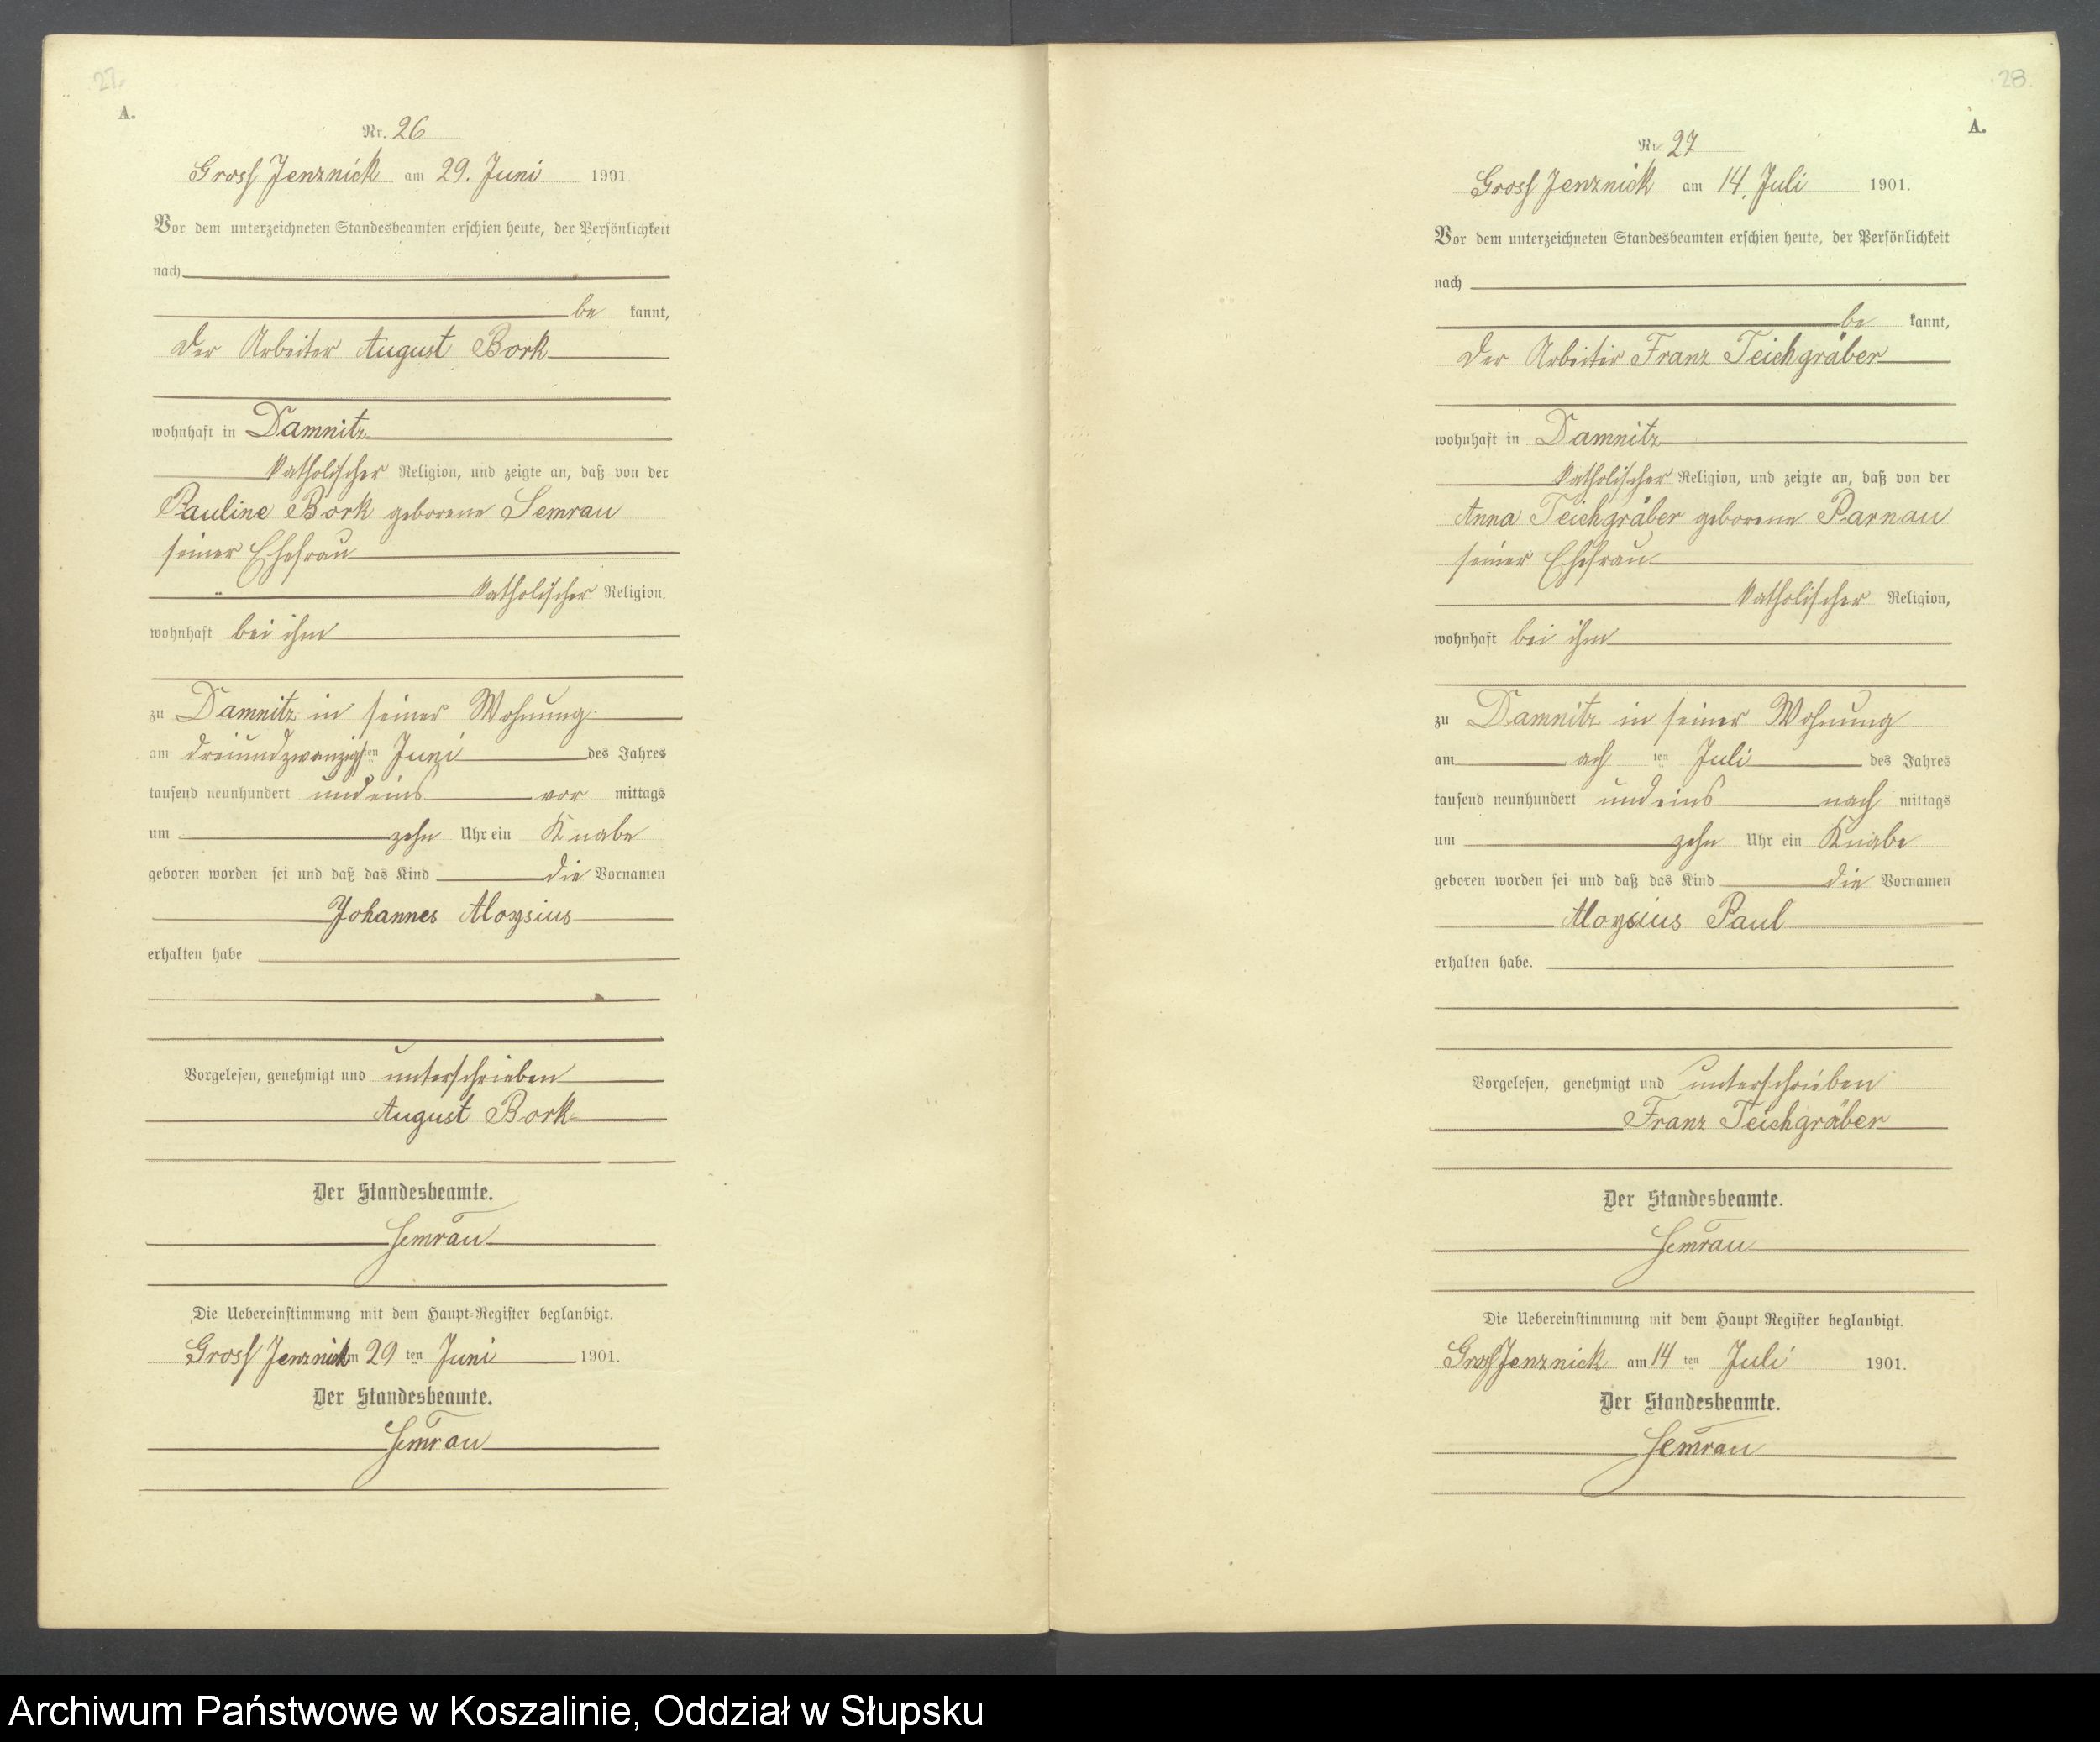 27.
A.
Nr. 26
Gross Jenznick am 29. Juni 1901.
Vor dem unterzeichneten Standesbeamten erschien heute, der Persönlichkeit
nach
be kannt,
der Arbeiter August Bork
wohnhaft in Damnitz
katholischer Religion, und zeigte an, daß von der
Pauline Bork geborene Semrau
seiner Ehefrau
katholischer Religion,
wohnhaft bei ihm
zu Damnitz in seiner Wohnung
am dreiundzwanzigsten Juni des Jahres
tausend neunhundert und eins vor mittags
um zehn Uhr ein Knabe
geboren worden sei und daß das Kind die Vornamen
Johannes Aloysius
erhalten habe
Vorgelesen, genehmigt und unterschrieben
August Bork
Der Standesbeamte.
Semrau
Die Uebereinstimmung mit dem Haupt-Register beglaubigt.
Gross Jenznick am 29 ten Juni 1901.
Der Standesbeamte.
Semrau
28.
A.
Nr. 27
Gross Jenznick am 14. Juli 1901.
Vor dem unterzeichneten Standesbeamten erschien heute, der Persönlichkeit
nach
be kannt,
der Arbeiter Franz Teichgräber
wohnhaft in Damnitz
katholischer Religion, und zeigte an, daß von der
Anna Teichgräber geborene Parnau
seiner Ehefrau
katholischer Religion,
wohnhaft bei ihm
zu Damnitz in seiner Wohnung
am ach ten Juli des Jahres
tausend neunhundert und eins nach mittags
um zehn Uhr ein Knabe
geboren worden sei und daß das Kind die Vornamen
Aloysius Paul
erhalten habe.
Vorgelesen, genehmigt und unterschrieben
Franz Teichgräber
Der Standesbeamte.
Semrau
Die Uebereinstimmung mit dem Haupt-Register beglaubigt.
Gross Jenznick am 14 ten Juli 1901.
Der Standesbeamte.
Semrau
Archiwum Państwowe w Koszalinie, Oddział w Słupsku